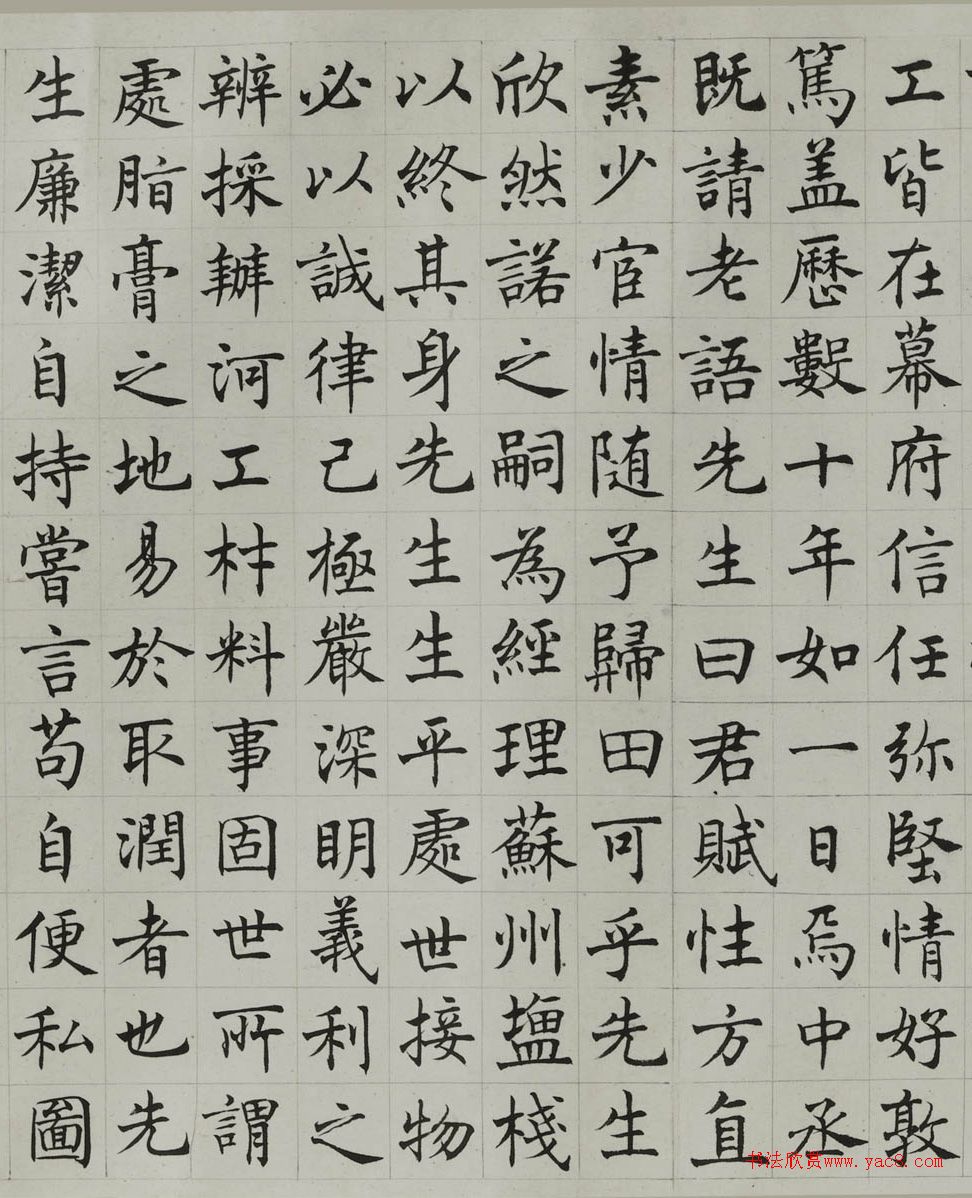 工皆在幕府信任弥堅情好敦
篤盖歷數十年如一日焉中丞
既請老語先生曰君賦性方直
素少宦情随予歸田可乎先生
欣然諾之嗣為經理蘇州塩棧
以終其身先生生平處世接物
必以誠律己極嚴深明義利之
辨採辦河工材料事固世所謂
處脂膏之地易於取潤者也先
生廉潔自持嘗言苟自便私圖
书法欣赏www.yac8.com